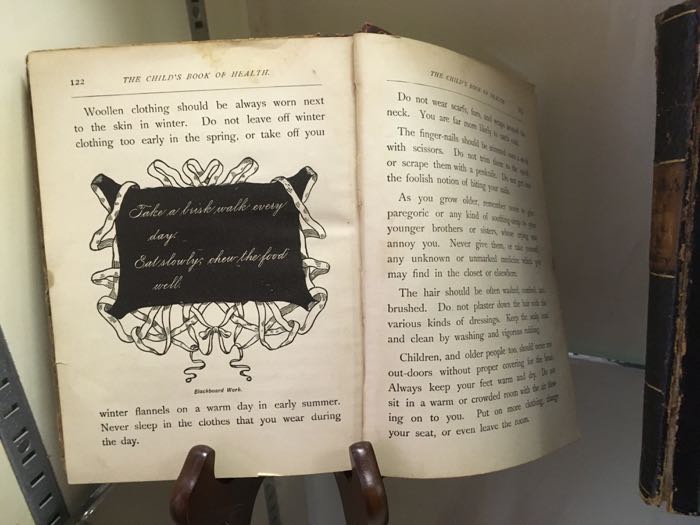 122
THE CHILD'S BOOK OF HEALTH.
Woollen clothing should be always worn next
to the skin in winter. Do not leave off winter
clothing too early in the spring, or take off your
Take a brisk walk every
day.
Eat slowly; chew the food
well.
Blackboard Work.
winter flannels on a warm day in early summer.
Never sleep in the clothes that you wear during
the day.
THE CHILD'S BOOK OF HEALTH
Do not wear scarfs, furs, and wraps around the
neck. You are far more likely to catch cold.
The finger-nails should be trimmed once a week
with scissors. Do not trim them to the quick
or scrape them with a penknife. Do not get into
the foolish notion of biting your nails.
As you grow older, remember never to give
paregoric or any kind of soothing-syrup to your
younger brothers or sisters, whose crying may
annoy you. Never give them, or take yourself,
any unknown or unmarked medicine which you
may find in the closet or elsewhere.
The hair should be often washed, combed, and
brushed. Do not plaster down the hair with the
various kinds of dressings. Keep the scalp cool
and clean by washing and vigorous rubbing.
Children, and older people too, should never run
out-doors without proper covering for the head.
Always keep your feet warm and dry. Do not
sit in a warm or crowded room with the air blow-
ing on to you. Put on more clothing, change
your seat, or even leave the room.